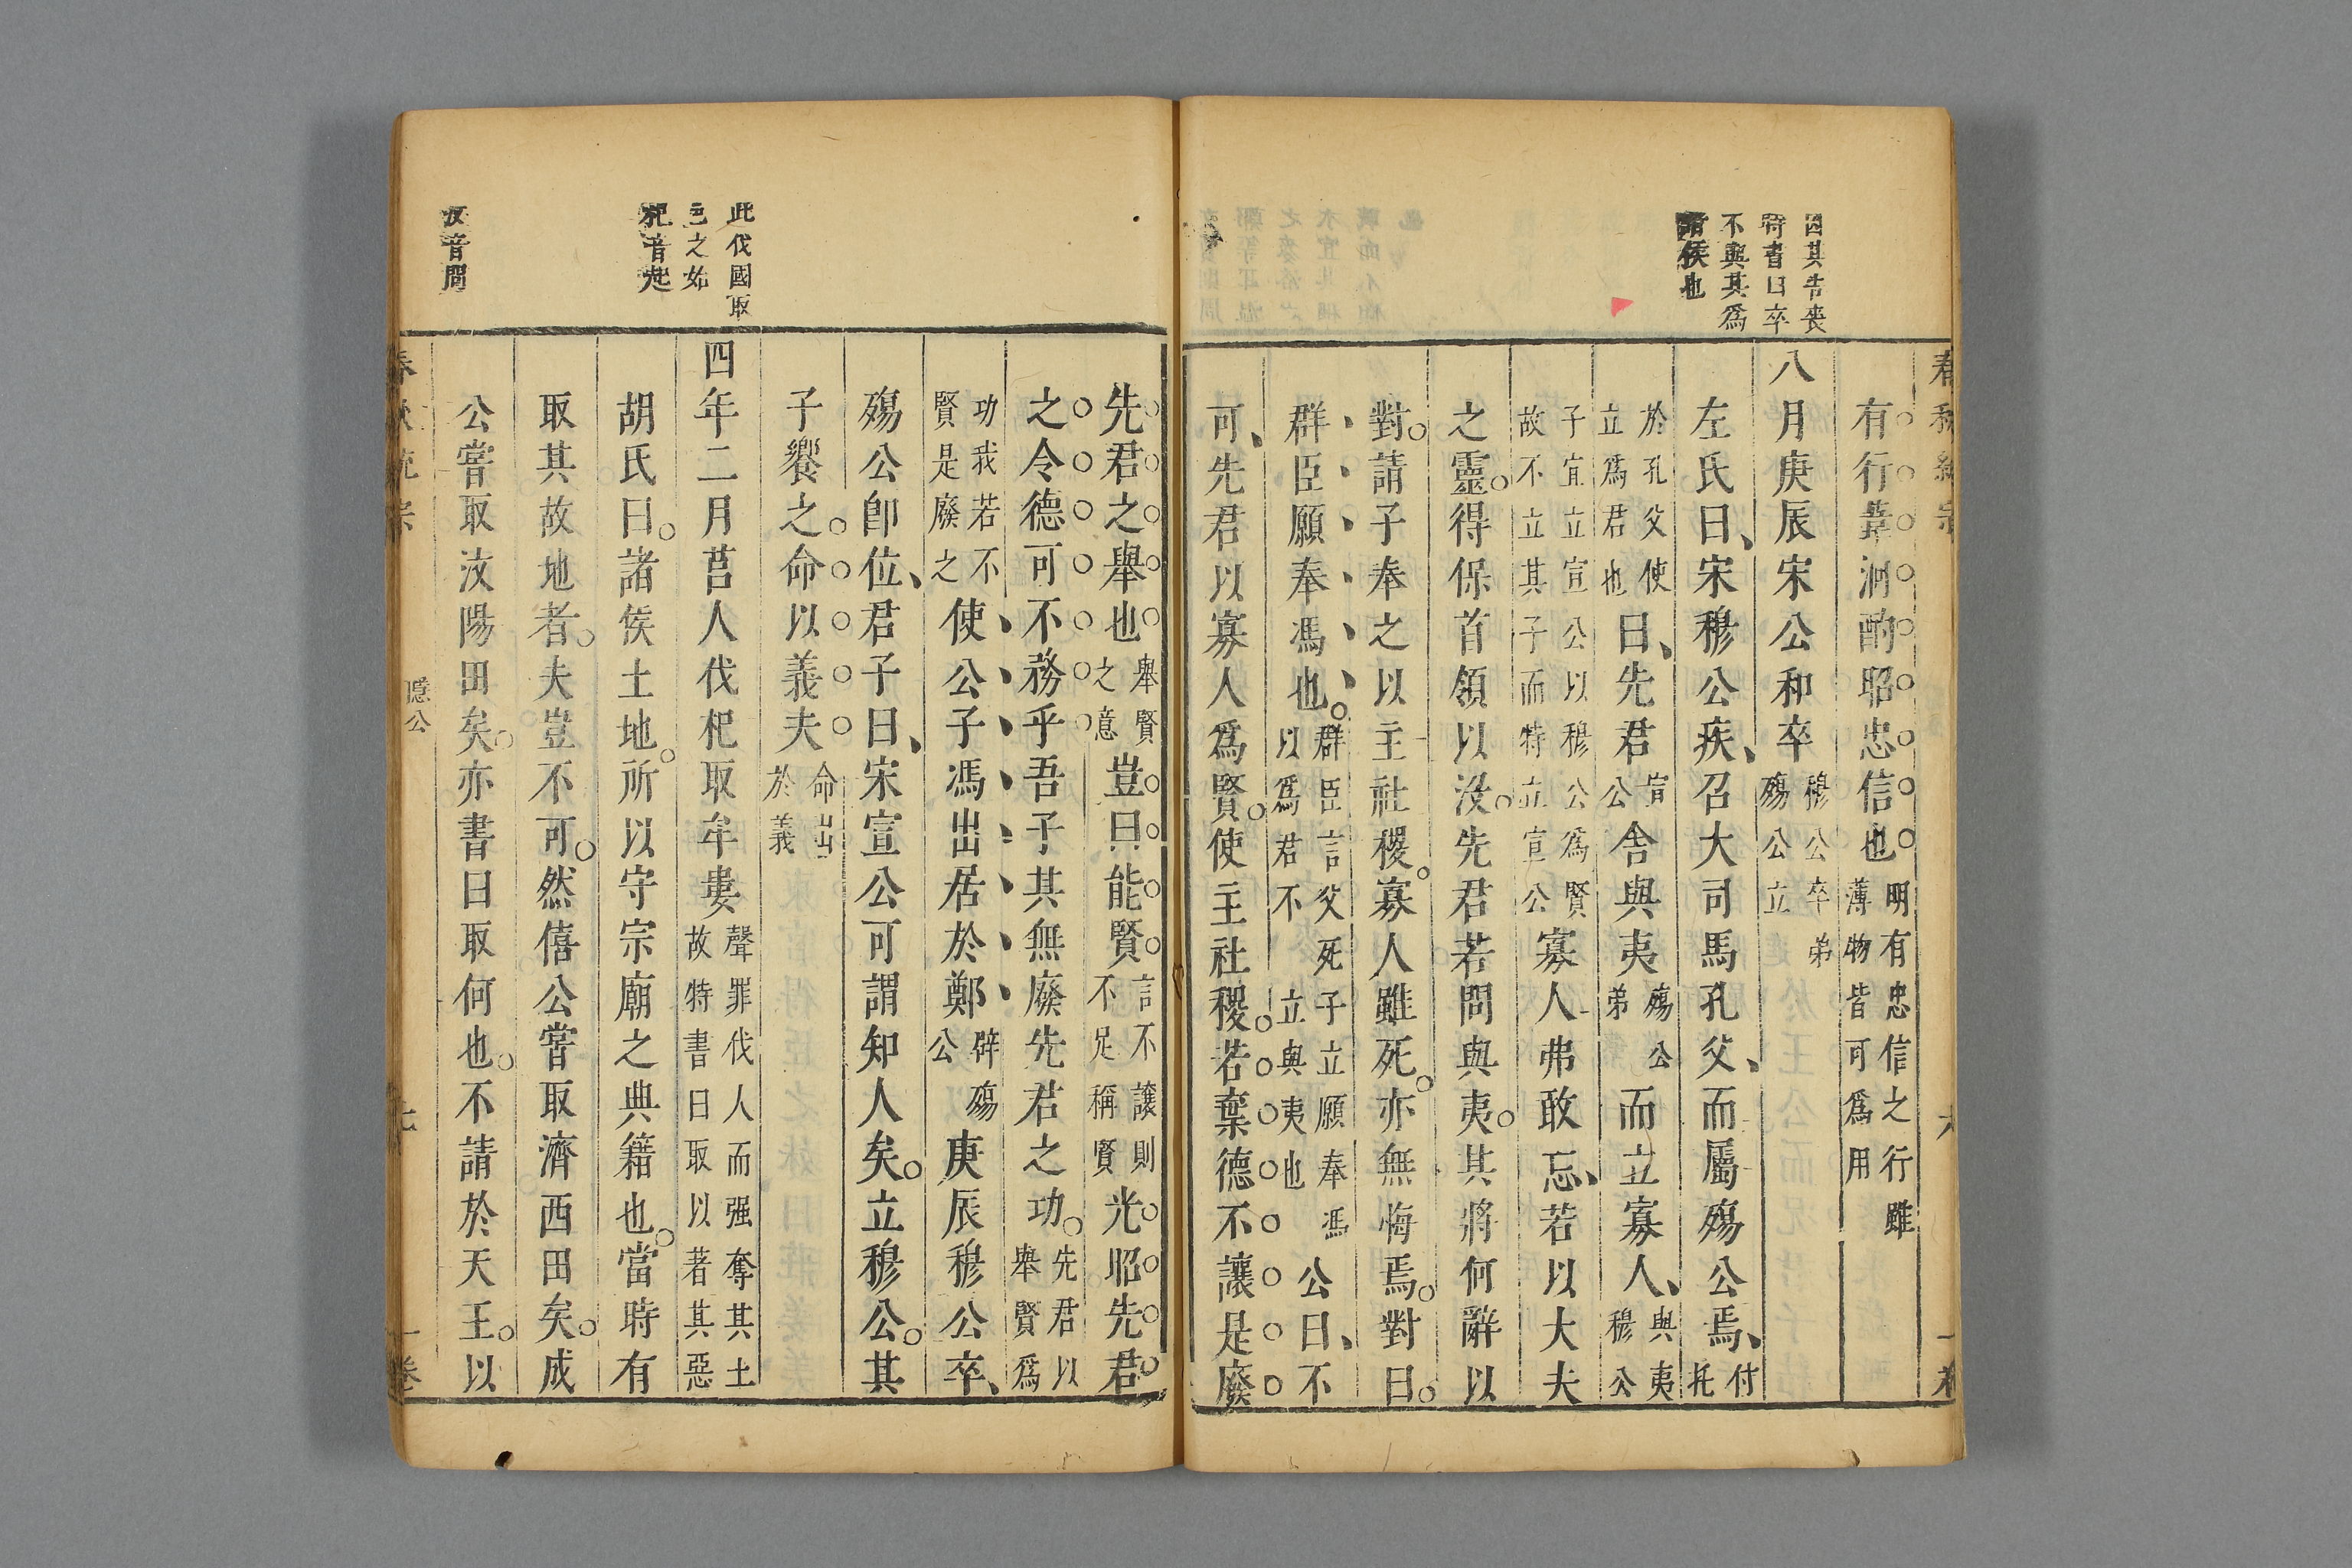 因其告喪
特書曰卒
不與其為
諸侯也
有行葦泂酌昭忠信也明有忠信之行雖薄物皆可爲用
八月庚辰宋公和卒穆公卒弟殤公立
左氏曰宋穆公疾召大司馬孔父而屬殤公焉付托
於孔父使立爲君也曰先君宣公舍與夷殤公弟而立寡人與夷穆公
子宜立宣公以穆公爲賢故不立其子而特立宣公寡人弗敢忘若以大夫
之靈得保首領以沒先君若問與夷其將何辭以
對請子奉之以主社稷寡人雖死亦無悔焉對曰
群臣願奉馮也群臣言父死子立願奉馮以爲君不立與夷也公曰不
可先君以寡人爲賢使主社稷若棄德不讓是廢
此伐國取
邑之始
杞音起
汶音問
先君之舉也舉賢之意豈曰能賢言不讓則不足稱賢光昭先君
之令德可不務乎吾子其無廢先君之功先君以舉賢爲
功我若不賢是廢之使公子馮出居於鄭辟殤公庚辰穆公卒
殤公卽位君子曰宋宣公可謂知人矣立穆公其
子饗之命以義夫命出於義
四年二月莒人伐杞取牟婁聲罪伐人而强奪其土故特書曰取以著其惡
胡氏曰諸侯土地所以守宗廟之典籍也當時有
取其故地者夫豈不可然僖公嘗取濟西田矣成
公嘗取汶陽田矣亦書曰取何也不請於天王以
春秋統宗 隱公 七 一卷